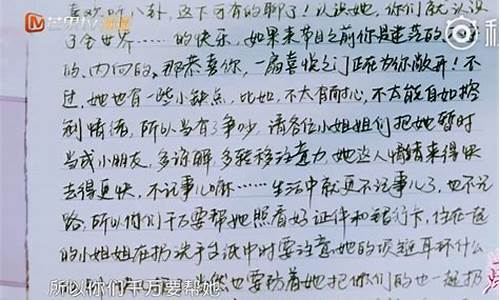 芒果TV
喜欢听八卦,这下可有的聊了!认识她,你们就认识
了全世界……的快乐,如果来节目之前你是迷茫的
的、内向的,那恭喜你,一扇喜悦之门正在为你敞开!不
过,她也有一些小缺点,比如,不太有耐心,不太能自如控
制情绪,所以当有了争吵,请各位小姐姐们把她暂时
当成小朋友,多谅解,多转移注意力,她这人情绪来得快
去得更快,不记事儿嘛……生活中就更不记事儿了,也不认
路,所以你们千万要帮她照看好证件和银行卡,住在一起
的小姐姐在扔洗手台纸巾时要注意她的项链耳环什么
她把你们的也一起扔
所以你们千万要帮她